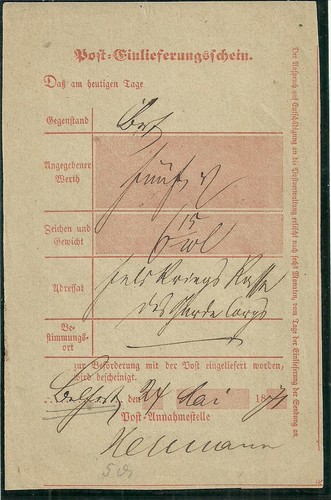 Post-Einlieferungsschein.
Daß am heutigen Tage
Gegenstand
Brf
Angegebener
Werth
fünf
Zeichen und
Gewicht
15
Adressat
Feld Kriegs Kasse
des Garde Corps
Be-
stimmungs-
ort
zur Beförderung mit der Post eingeliefert worden,
wird bescheinigt.
Belfort, den 24 Mai 1871
Post-Annahmestelle
Heumann
Der Anspruch auf Entschädigung an die Postverwaltung erlischt nach sechs Monaten, vom Tage der Einlieferung der Sendung an